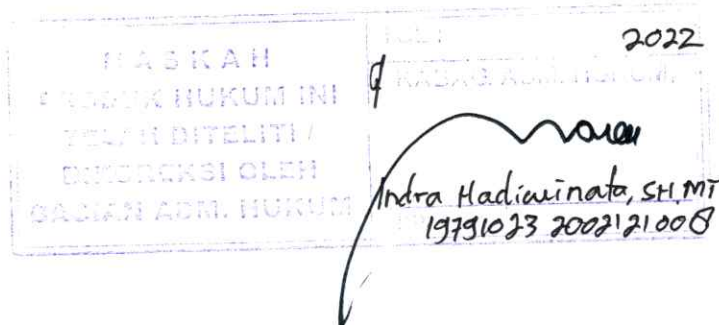 NASKAH
PRODUK HUKUM INI
TELAH DITELITI /
DIKOREKSI OLEH
BAGIAN ADM. HUKUM
2022
KABAG ADM. HUKUM,
Indra Hadiwinata, SH.MT
19791023 200212 1 008